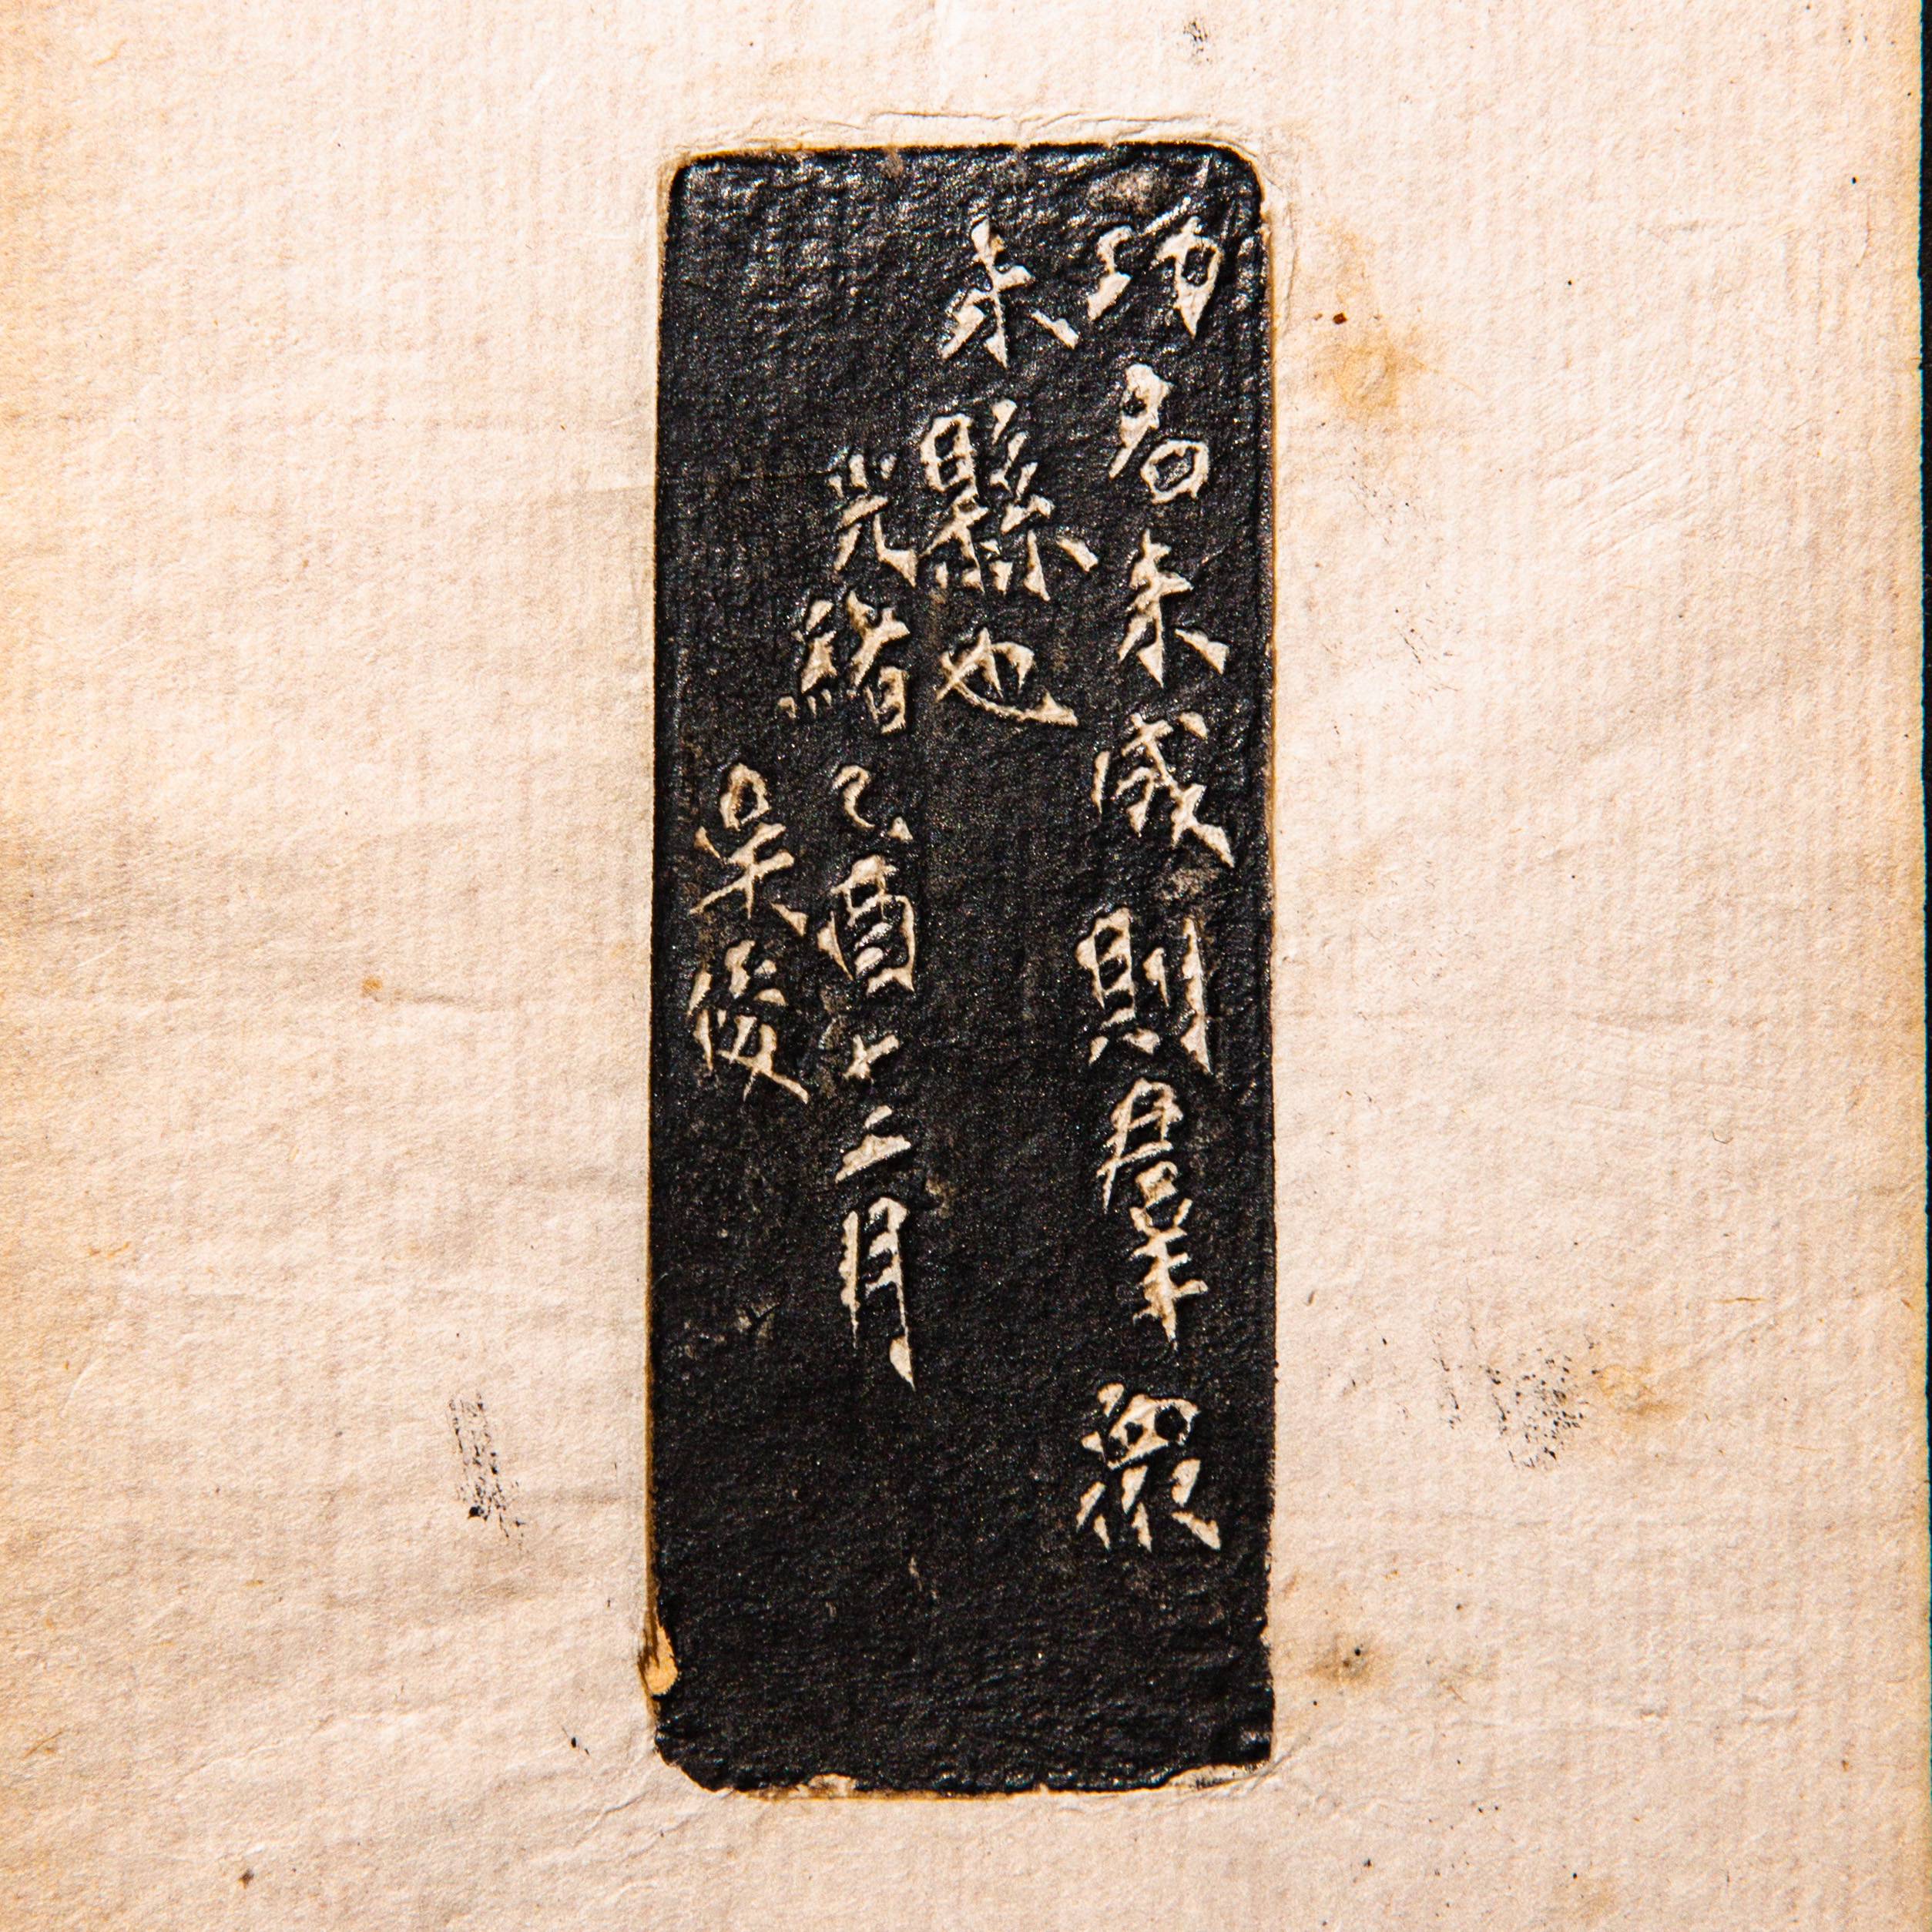 功名未成則羣衆
未縣也
光緒己酉十二月
吳